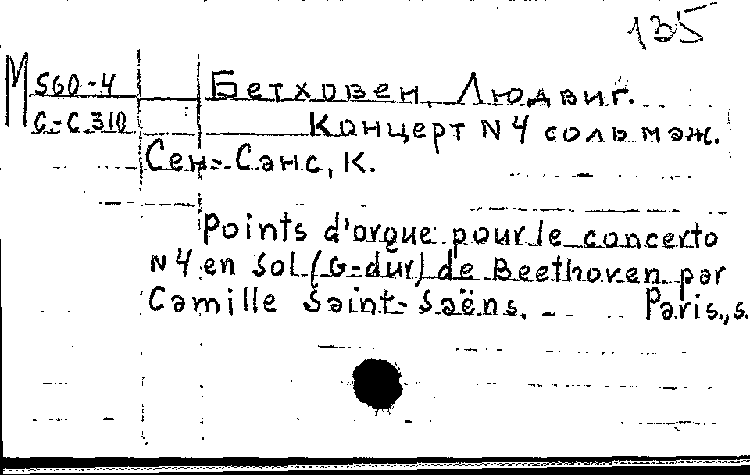 135
М 560-4 Бетховен, Людвиг.
С.-С.310 Концерт N4 соль маж.
Сен-Санс, К.
Points d'orgue pour le concerto
N4 en Sol (G-dur) de Beethoven par
Camille Saint-Saëns. - Paris., s.